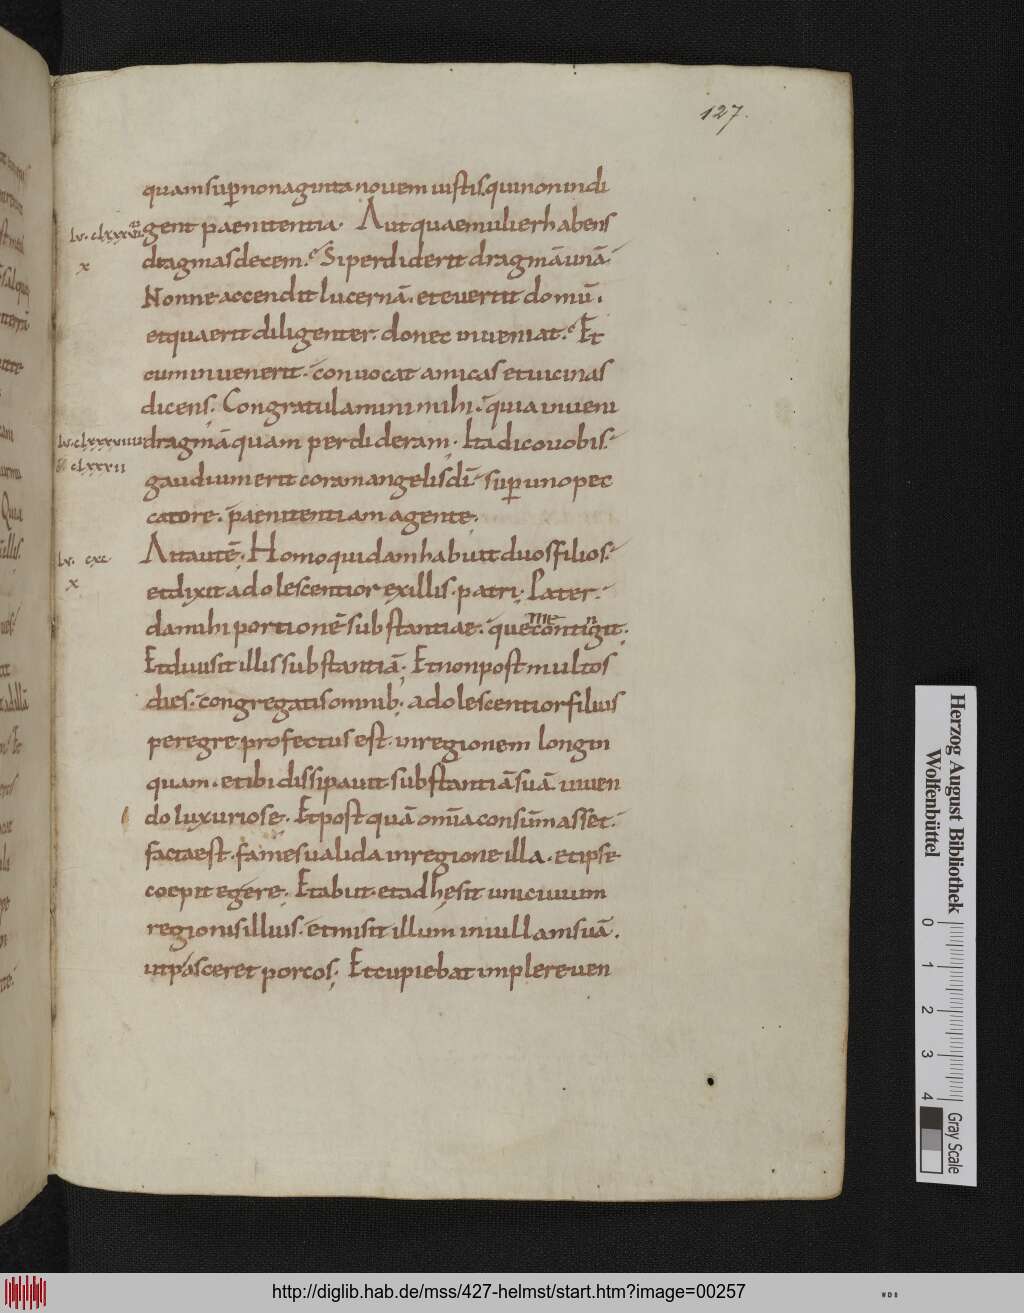 127.
quam sup nonaginta novem iustis qui non indi
gent paenitentia. Aut quae mulier habens
dragmas decem. Si perdiderit dragmā unā.
x
Nonne accendit lucernā. et evertit domū.
et quaerit diligenter. donec inveniat. Et
cum invenerit. convocat amicas et vicinas
dicens. Congratulamini mihi. quia inveni
dragmā quam perdideram. Ita dico vobis.
clxxxii
gaudium erit coram angelis dī. sup uno pec
catore. paenitentiam agente.
lv. cxc
Ait autē. Homo quidam habuit duos filios.
x
et dixit adolescentior ex illis. patri. Pater.
da mihi portionē substantiae. que me contingit.
Et divisit illis substantiā. Et non post multos
dies. congregatis omnib. adolescentior filius
peregre profectus est. in regionem longin
quam. et ibi dissipavit substantiā suā viven
do luxuriose. Et post quā omīa consūmasset.
facta est. fames valida in regione illa. et ipse
coepit egere. Et abiit. et adhesit uni civium
regionis illius. et misit illum in villam suā.
ut pasceret porcos. Et cupiebat implere ven
Herzog August Bibliothek
Wolfenbüttel
0 1 2 3 4
Gray Scale
http://diglib.hab.de/mss/427-helmst/start.htm?image=00257